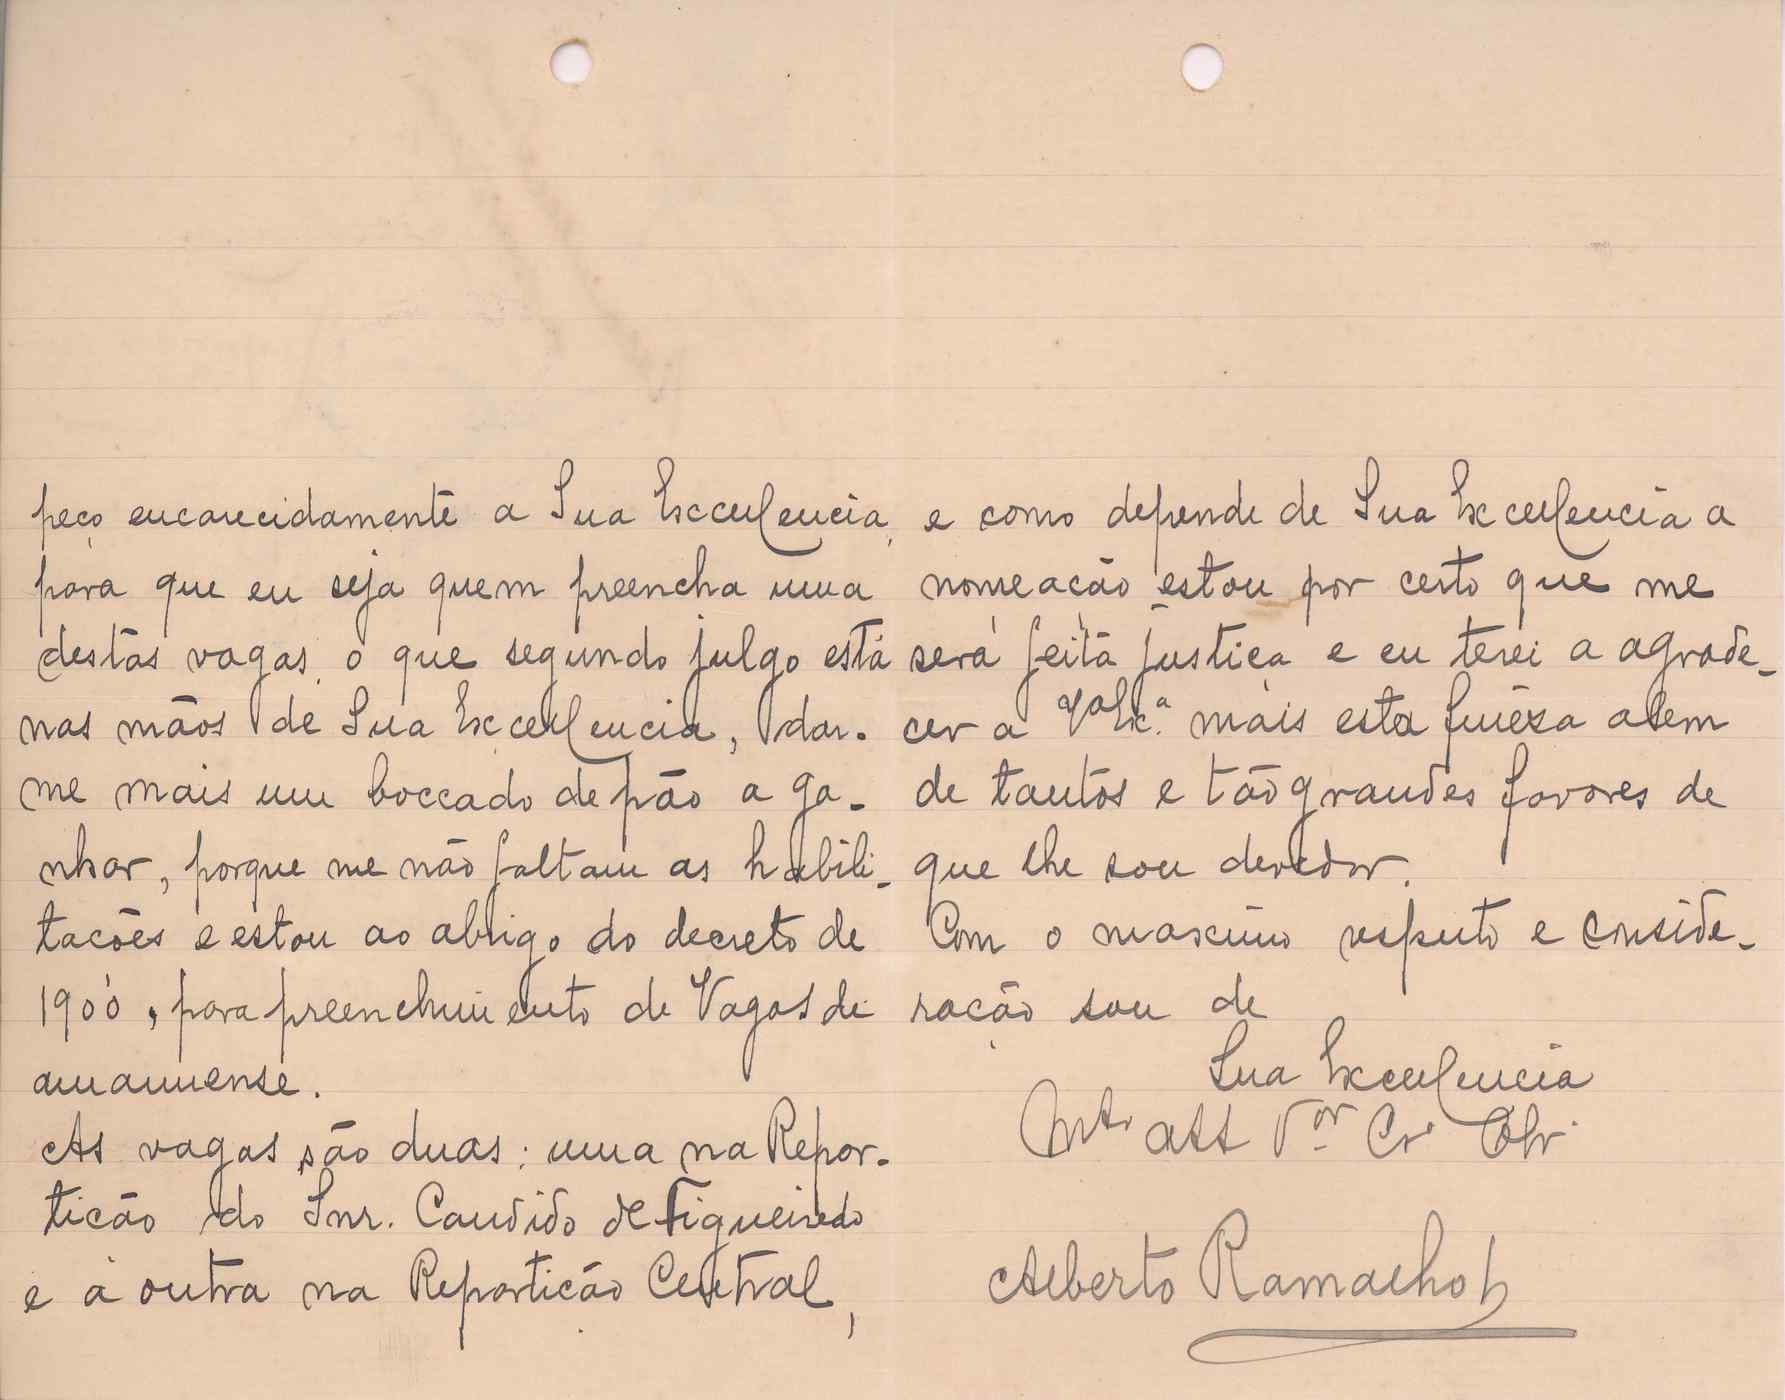 peço encarecidamente a Sua Excellencia,
para que eu seja quem preencha uma
destas vagas, o que segundo julgo está
nas mãos de Sua Excellencia, dar-
me mais um boccado de pão a ga-
nhar, porque me não faltam as habili-
tacões e estou ao abrigo do decreto de
1900, para preenchimento de Vagas de
amanuense.
As vagas são duas: uma na Repar-
ticão do Snr. Candido de Figueiredo
e a outra na Reparticão Central,
e como depende de Sua Excellencia a
nomeação estou por certo que me
será feita justiça e eu terei a agrade-
cer a Va Exª. mais esta fineza alem
de tantos e tão grandes favores de
que lhe sou devedor.
Com o maximo respeito e conside-
ração sou de
Sua Excellencia
Mto att Vor Cro Obro
Alberto Ramalho